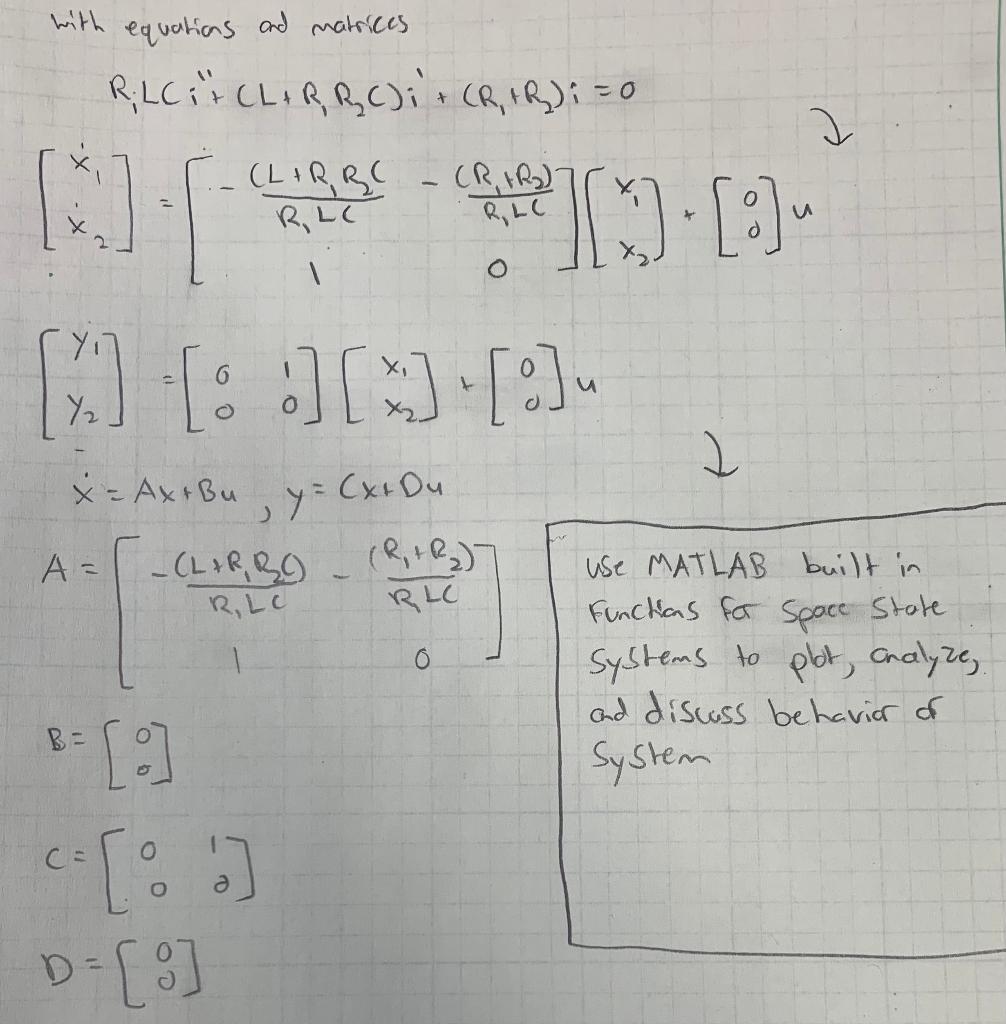 with equations and matrices
R₁LC i'' + (L + R₁R₂C) i' + (R₁+R₂) i = 0
[ẋ₁ ẋ₂] = [-(L+R₁R₂C / R₁LC -(R₁+R₂) / R₁LC 1 0] [x₁ x₂] + [0 0] u
[y₁ y₂] = [0 1 0 0] [x₁ x₂] + [0 0] u
ẋ = Ax + Bu , y = Cx + Du
A = [-(L+R₁R₂C) / R₁LC -(R₁+R₂) / R₁LC 1 0]
B = [0 0]
C = [0 1 0 0]
D = [0 0]
use MATLAB built in
functions for Space State
Systems to plot, analyze,
and discuss behavior of
System